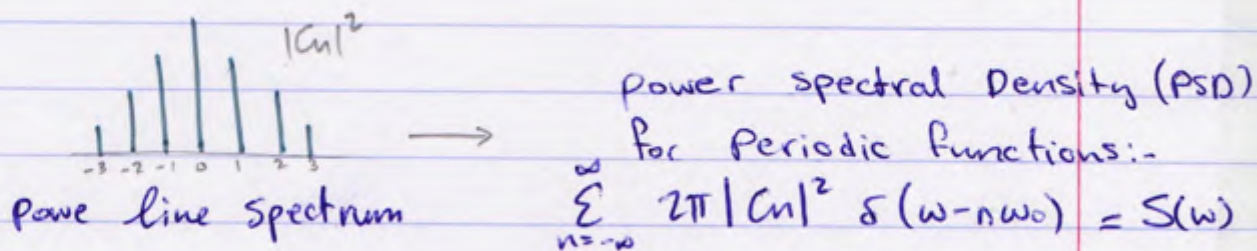 |Cn|²
-3 -2 -1 0 1 2 3
powe line spectrum
power spectral Density (PSD)
for Periodic functions:-
∞
Σ 2π |Cn|² δ(ω-nω₀) = S(ω)
n=-∞